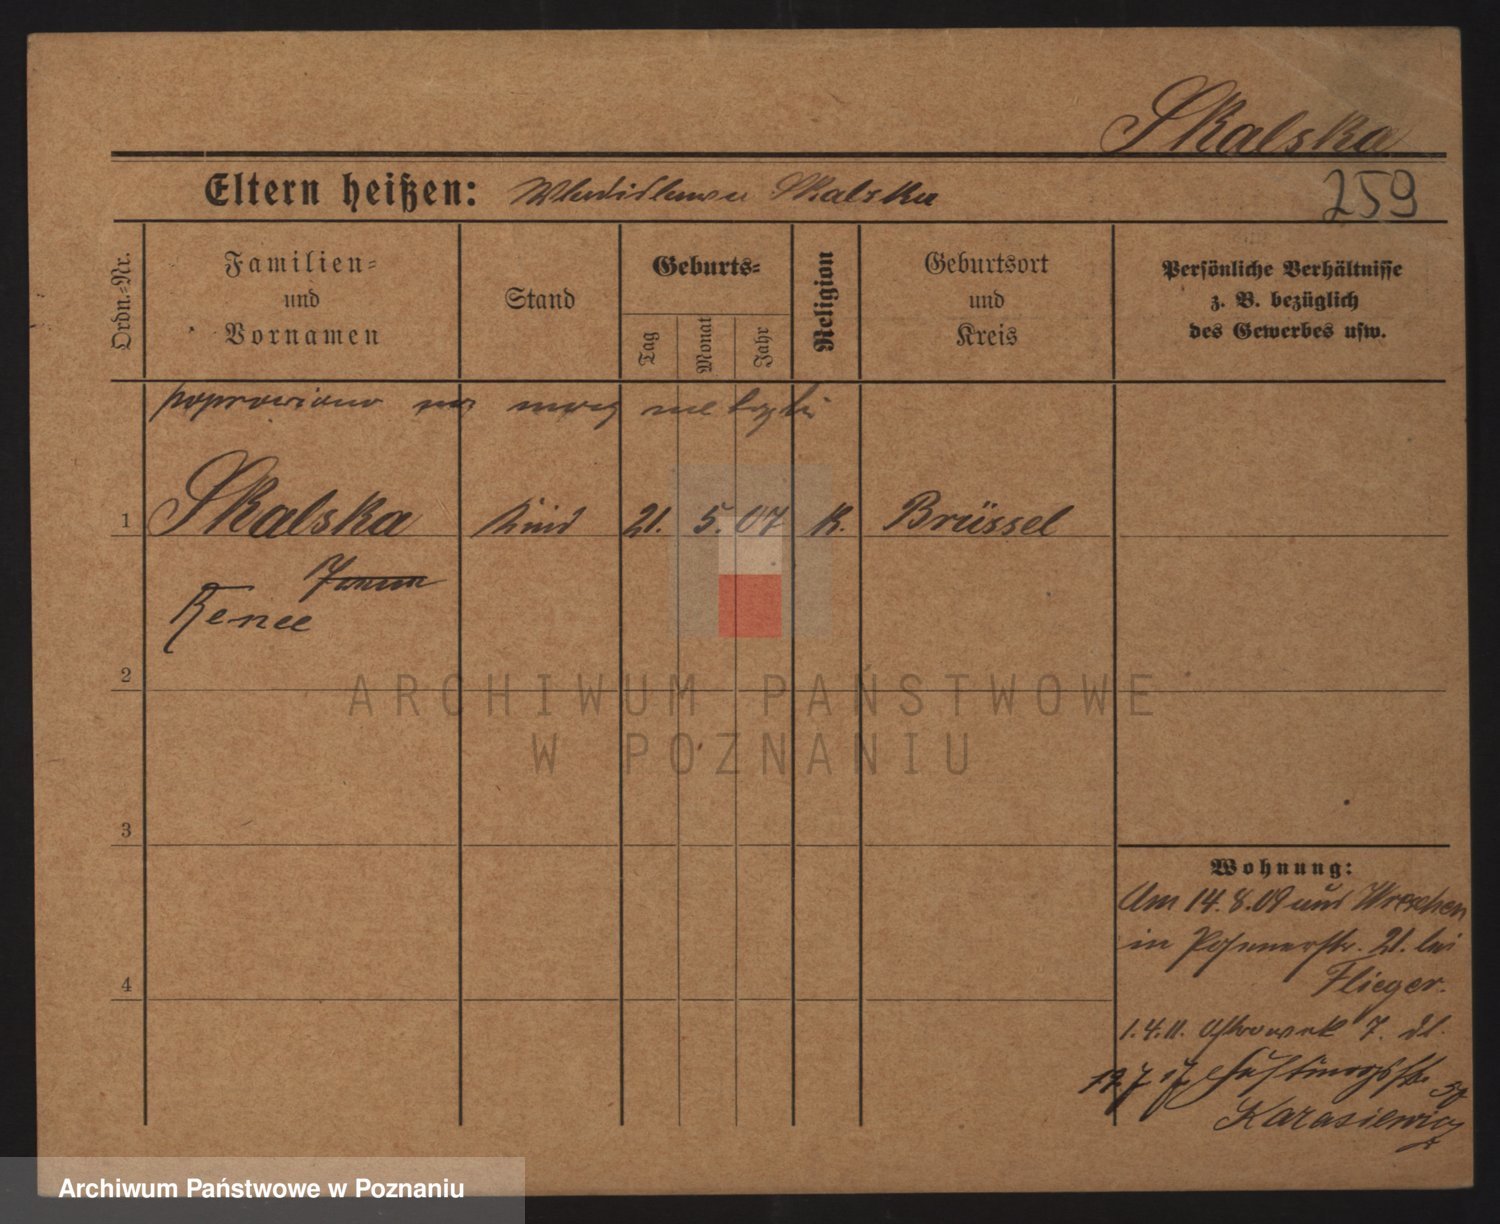 Skalska
Eltern heißen: Wladislawa Skalska
259
Ordn.-Nr.
Familien-
und
Vornamen
Stand
Geburts-
Tag
Monat
Jahr
Religion
Geburtsort
und
Kreis
Persönliche Verhältnisse
z. B. bezüglich
des Gewerbes usw.
poprawiono na mocy metryki
1 Skalska Kind 21. 5. 07 K. Brüssel
Renee
2
3
4
Wohnung:
Am 14.8.09 aus Wreschen
in Posenerstr. 21. bei
Flieger.
1.4.11. Ostrowek 7.
19 7 17
Karasiewicz
ARCHIWUM PAŃSTWOWE
W POZNANIU
Archiwum Państwowe w Poznaniu